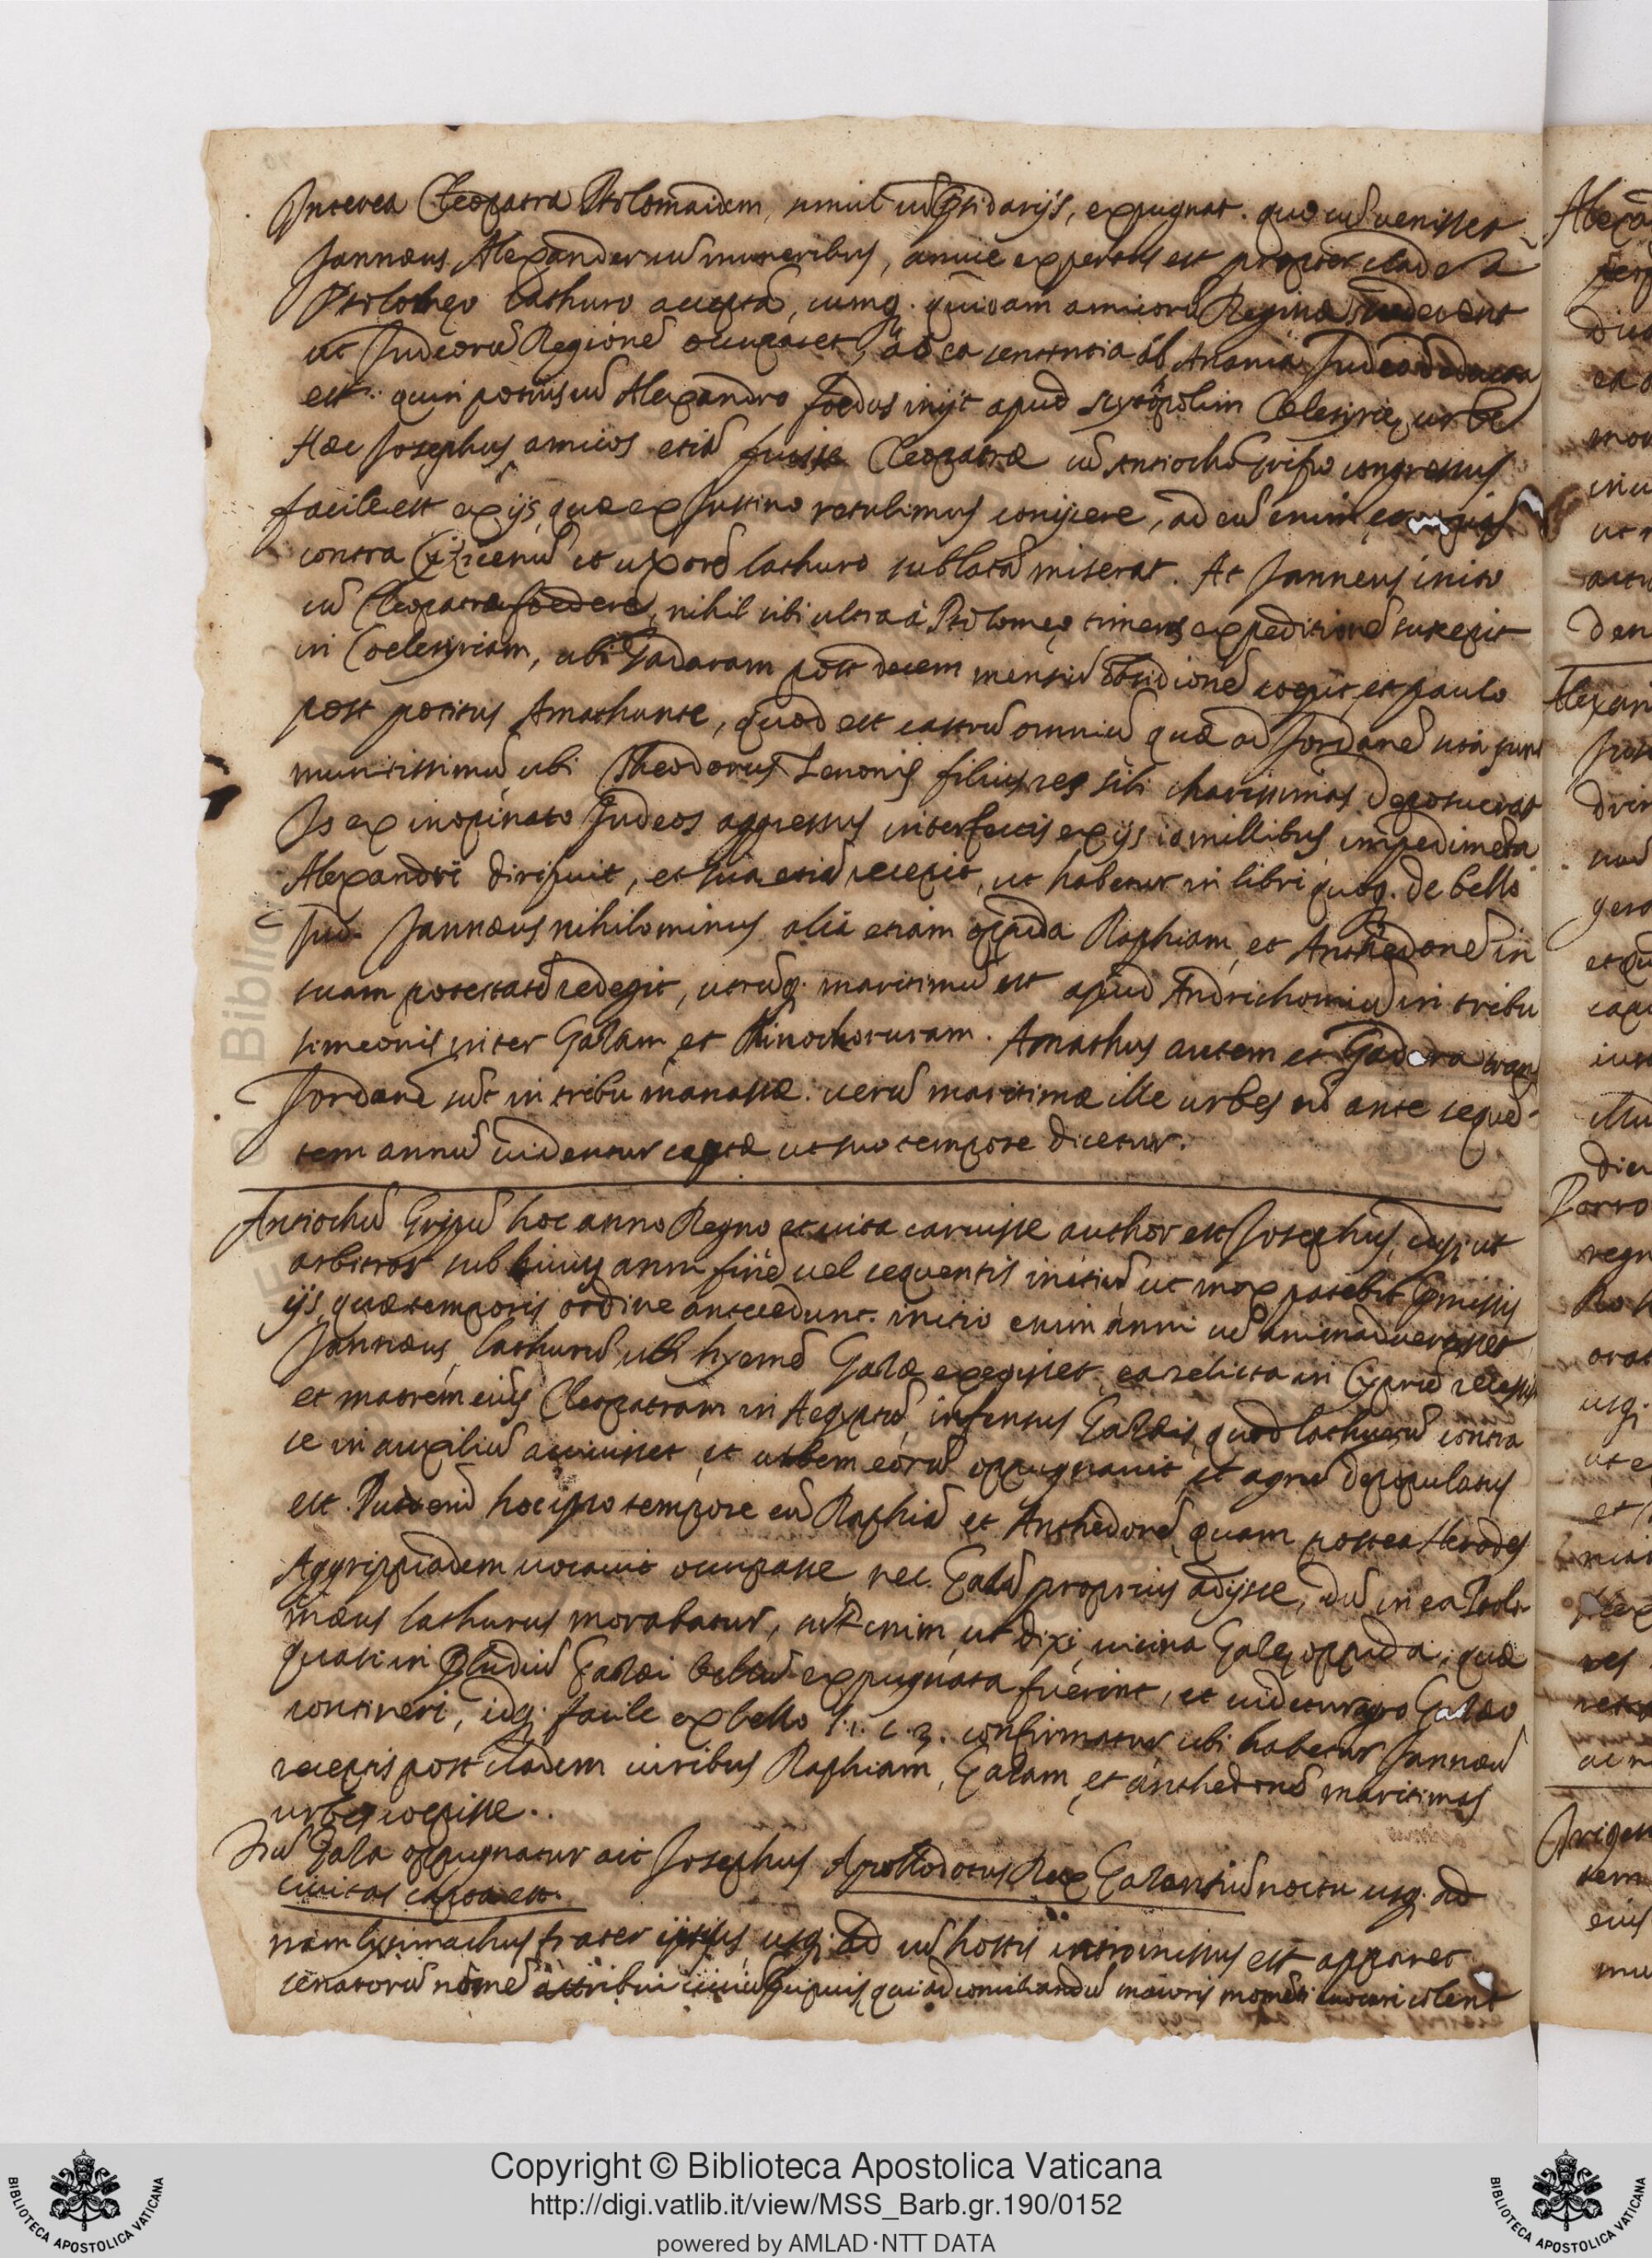 Interea Cleopatra Ptolomaidem, simul cū p̄sidarijs, expugnat. quo cū venisset
Jannæus Alexander cū muneribus, amice exceptus est propter cladē à
Ptolomęo Lathuro acceptā, cumq. quidam amicorū Reginæ suaderent
ut Judeorū Regionē occuparet, ab ea sententia ab Anania Judeo deducta
est. quin potius cū Alexandro foedus inijt apud scytopolim Coelesyrię urbē
Hæc Josephus amicos etiā fuisse Cleopatræ cū Antiocho Gripo congressus
facile est ex ijs, quæ ex Justino retulimus conijcere, ad eū enim
contra Cizicenū et uxorē Lathuro sublatā miserat. At Janneus inito
cū Cleopatra foedere, nihil sibi ultra à Ptolomęo timens expeditionē suscepit
in Coelesyriam, ubi Gadaram post decem mensiū obsidionē coepit, et paulo
post potitus Amathunte, quod est castrū omniū quæ ad Jordanē sita sunt
munitissimū ubi Theodorus Zenonis filius res sibi charissimas deposuerat
Is ex inopinato Judeos aggressus interfectis ex ijs 10 millibus impedimēta
Alexandri diripuit, et sua etiā recepit, ut habetur in libri quoq. de bello
Jud. Jannæus nihilominus alia etiam oppida Raphiam, et Anthedonē in
suam potestatē redegit, utrūq. maritimū est apud Andrichomiū in tribu
simeonis inter Gazam et Rinochoruram. Amathus autem et Gadara trans
Jordanē sūt in tribu manasse. verū maritimæ ille urbes nō ante sequē-
tem annū videntur captæ ut suo tempore dicetur.
Antiochū Gripū hoc anno Regno et vita caruisse author est Josephus, ut
arbitror sub huius anni finē vel sequentis initiū ut mox patebit p̄missis
ijs, quæ temporis ordine antecedunt. initio enim anni cū animadvertisset
Jannæus Lathurū, ubi hyemē Gazæ exegisset, ea relicta in Cyprū recessisse
et matrem eius Cleopatram in Aegyptū, infensus Gazæis, quod Lathurū contra
se in auxiliū accivisset, et urbem eorū oppugnavit, et agrū depopulatus
est. Puto enī hoc ipso tempore eū Raphiā et Anthedonē, quam postea Herodes
Aggrippiadem vocavit occupasse, nec Gazā propius adijsse, dū in ea Ptolo-
mæus Lathurus morabatur, sūt enim, ut dixi, vicina Gazę oppida, quæ
quasi in Gazæi expugnata fuerint, et videtur agro Gazæo
contineri, idq. facile ex bello l. 1. c. 3. confirmatur, ubi habetur Jannæū
receptis post cladem viribus Raphiam, Gazam, et anthedonē maritimas
urbes coepisse.
Dū Gaza oppugnatur ait Josephus Apollodotus Rex Gazensiū noctu usq. ad
civitas capta est.
nam lysimachus frater ipsius, usq. ad cū hostis intromissus est apparet
senatorū nomē attribui quipuis, qui ad consultandū maioris momēti solent